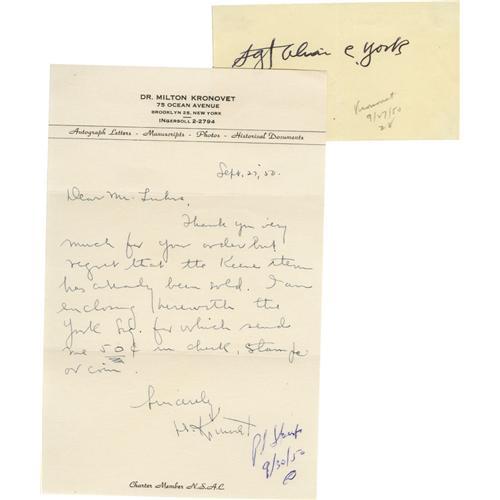 Sgt Alvin C. York
Kronovet
9/27/50
DR. MILTON KRONOVET
75 OCEAN AVENUE
BROOKLYN 25, NEW YORK
INGERSOLL 2-2794
Autograph Letters - Manuscripts - Photos - Historical Documents
Sept. 27, '50.
Dear Mr.
Thank you very
much for your order but
regret that the Keene item
has already been sold. I am
enclosing herewith the
York Sig. for which send
me 50¢ in check, stamps
or coin.
Sincerely
M. Kronovet
9/30/50
Charter Member N.S.A.C.